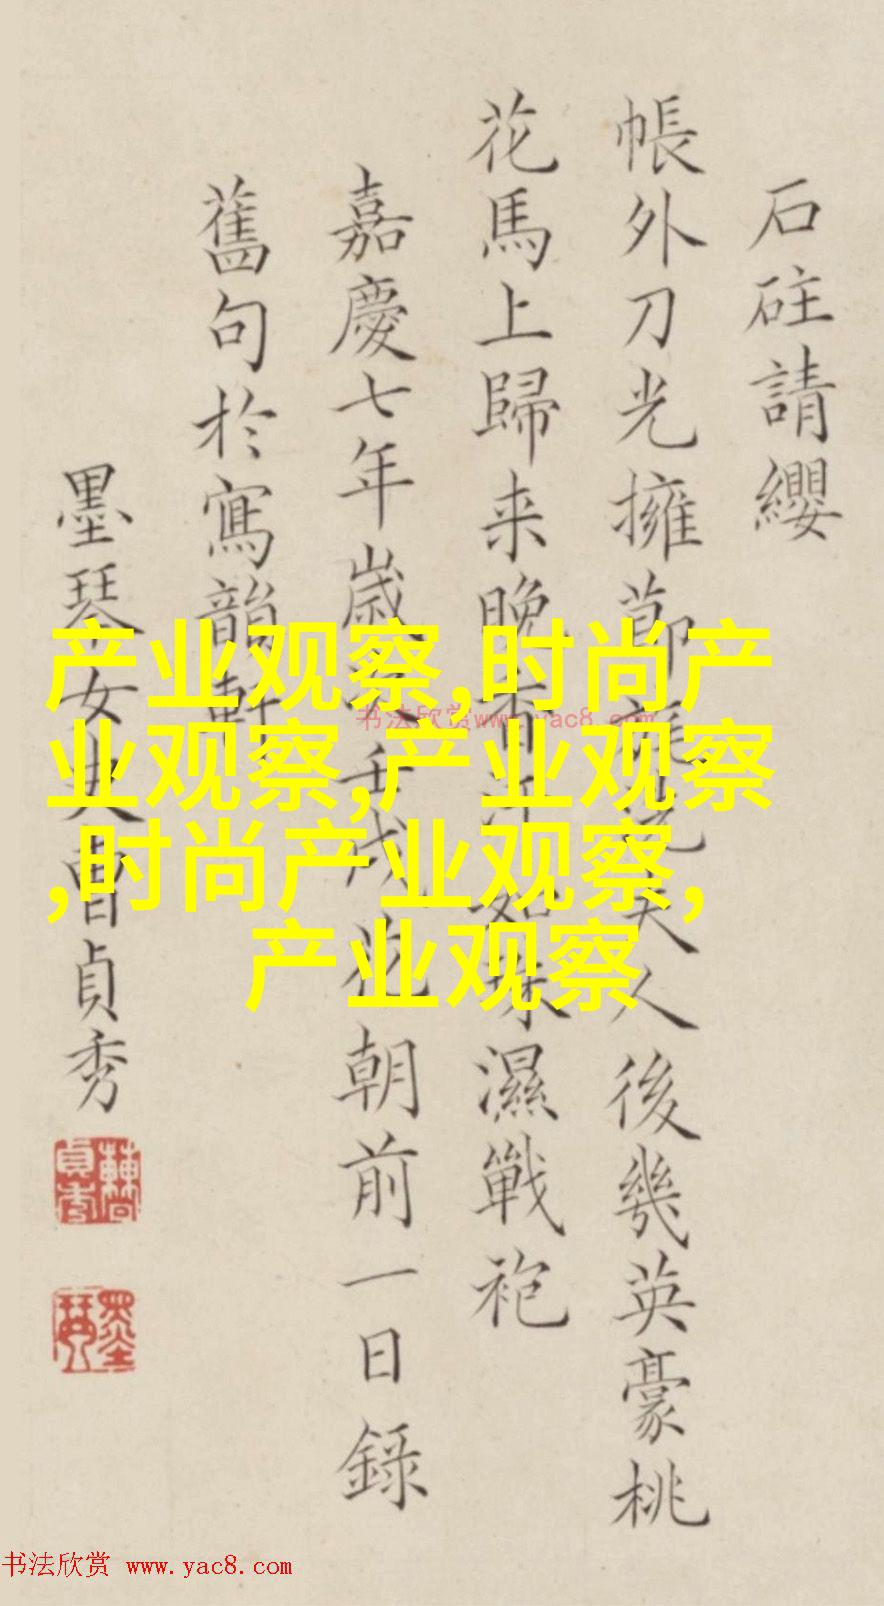 石砫請纓
帳外刀光擁節旄夫人後幾英豪桃
花馬上歸来晚香汗如珠濕戰袍
嘉慶七年歲次壬戌花朝前一日錄
舊句於寫韻軒
墨琴女史曹貞秀
墨琴
产业观察,时尚产
业观察,产业观察
,时尚产业观察,
产业观察
书法欣赏www.yac8.com
书法欣赏 www.yac8.com